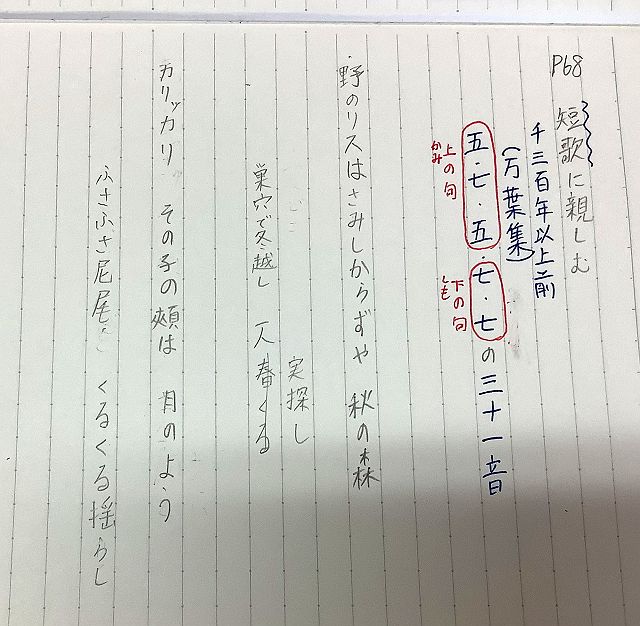 P68
短歌に親しむ
千三百年以上前
(万葉集)
五・七・五・七・七の三十一音
上の句
かみ
下の句
しも
実探し
野のリスはさみしからずや 秋の森
巣穴で冬越し 一人春くる
カリッカリ その子の頰は 月のよう
ふさふさ尾 くるくる揺らし